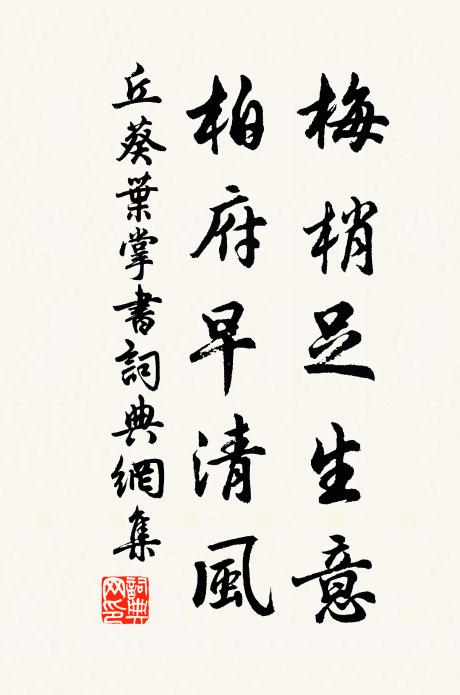 梅梢足生意
柏府早清風
丘葵葉掌書詞典網集
詞典網印